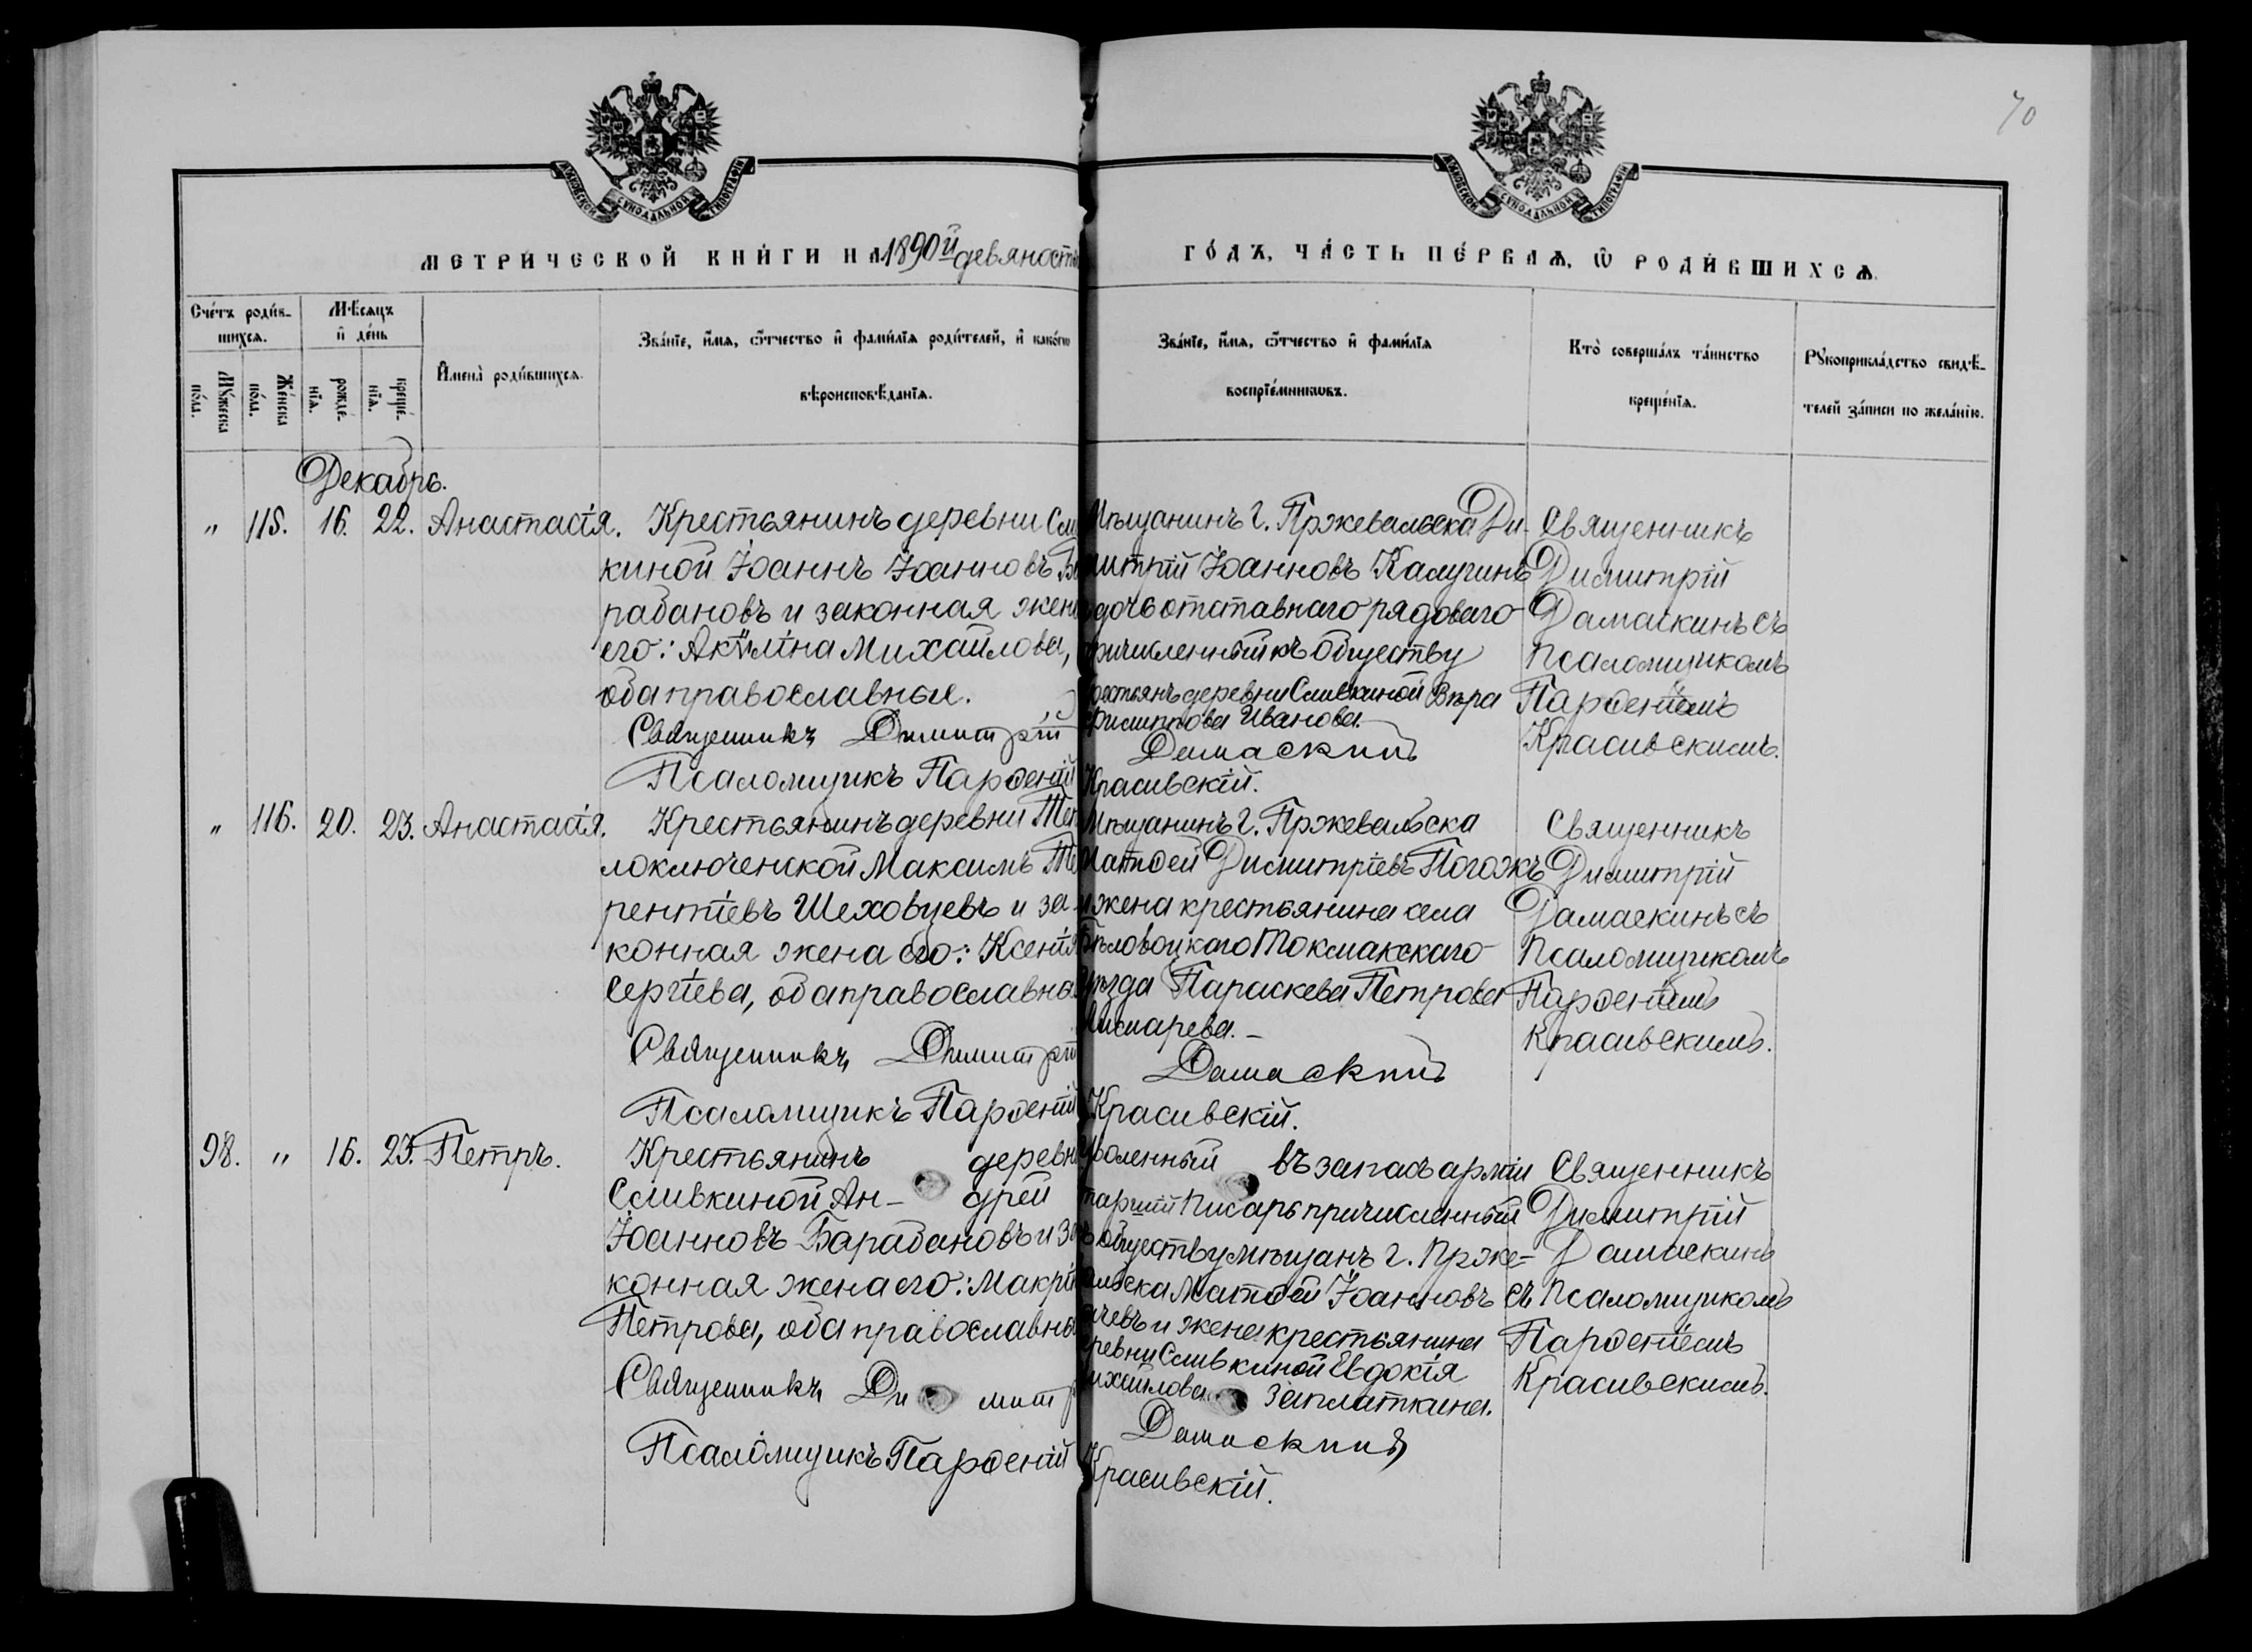 70
МОСКОВСКОЙ СѴНОДАЛЬНОЙ ТИПОГРАФІИ
МОСКОВСКОЙ СѴНОДАЛЬНОЙ ТИПОГРАФІИ
МЕТРИ́ЧЕСКОЙ КНИ́ГИ НА 1890й девяност
ГО́ДЪ, ЧА́СТЬ ПЕ́РВАѦ, Ѡ҆ РОДИ́ВШИХСѦ.
Сче́тъ роди́в-
шихсѧ.
Мѣ́сѧцъ
и҆ де́нь
Мꙋ́жеска по́ла.
Же́нска по́ла.
рожде́-нїѧ.
креще́-нїѧ.
И҆мена̀ роди́вшихсѧ.
Зва́нїе, и҆́мѧ, ѻ҆́тчество и҆ фами́лїѧ роди́телей, и҆ како́гѡ
вѣроисповѣ́данїѧ.
Зва́нїе, и҆́мѧ, ѻ҆́тчество и҆ фами́лїѧ
воспрїе́мникѡвъ.
Кто̀ соверша́лъ та́инство
креще́нїѧ.
Рꙋкоприкла́дство свидѣ́-
телей за́писи по жела́нїю.
Декабрь.
" 115. 16. 22. Анастасія.
Крестьянинъ деревни Сли
киной Іоаннъ Іоанновъ Ба
рабановъ и законная жена
его: Акѵлина Михайлова,
оба православные.
Священникъ Димитрій
Псаломщикъ Парѳеній
Мѣщанинъ г. Пржевальска Ди-
митрій Іоанновъ Калугинъ
дочь отставнаго рядоваго
причисленный къ обществу
крестьянъ деревни Сливкиной Вѣра
Филиппова Иванова.
Дамаскинъ
Красивскій.
Священникъ
Димитрій
Дамаскинъ съ
псаломщикомъ
Парѳеніемъ
Красивскимъ.
" 116. 20. 23. Анастасія.
Крестьянинъ деревни Теп
лоключенской Максимъ Те
рентіевъ Шеховцевъ и за-
конная жена его: Ксенія
Сергіева, оба православны
Священникъ Димитрій
Псаломщикъ Парѳеній
Мѣщанинъ г. Пржевальска
Матѳей Димитріевъ Погожъ
и жена крестьянина села
Бѣловодскаго Токмакскаго
уѣзда Параскева Петрова
Писарева.
Дамаскинъ
Красивскій.
Священникъ
Димитрій
Дамаскинъ съ
псаломщикомъ
Парѳеніемъ
Красивскимъ.
98. " 16. 23. Петръ.
Крестьянинъ деревни
Сливкиной Ан- дрей
Іоанновъ Барабановъ и за
конная жена его: Макрі
Петрова, оба православны
Священникъ Ди митр
Псаломщикъ Парѳеній
Уволенный въ запасъ арміи
старшій писарь причисленный
къ обществу мѣщанъ г. Прже-
вальска Матѳей Іоанновъ
и жена крестьянина
деревни Сливкиной Евдокія
Михайлова Заплаткина.
Дамаскинъ
Красивскій.
Священникъ
Димитрій
Дамаскинъ
съ псаломщикомъ
Парѳеніемъ
Красивскимъ.